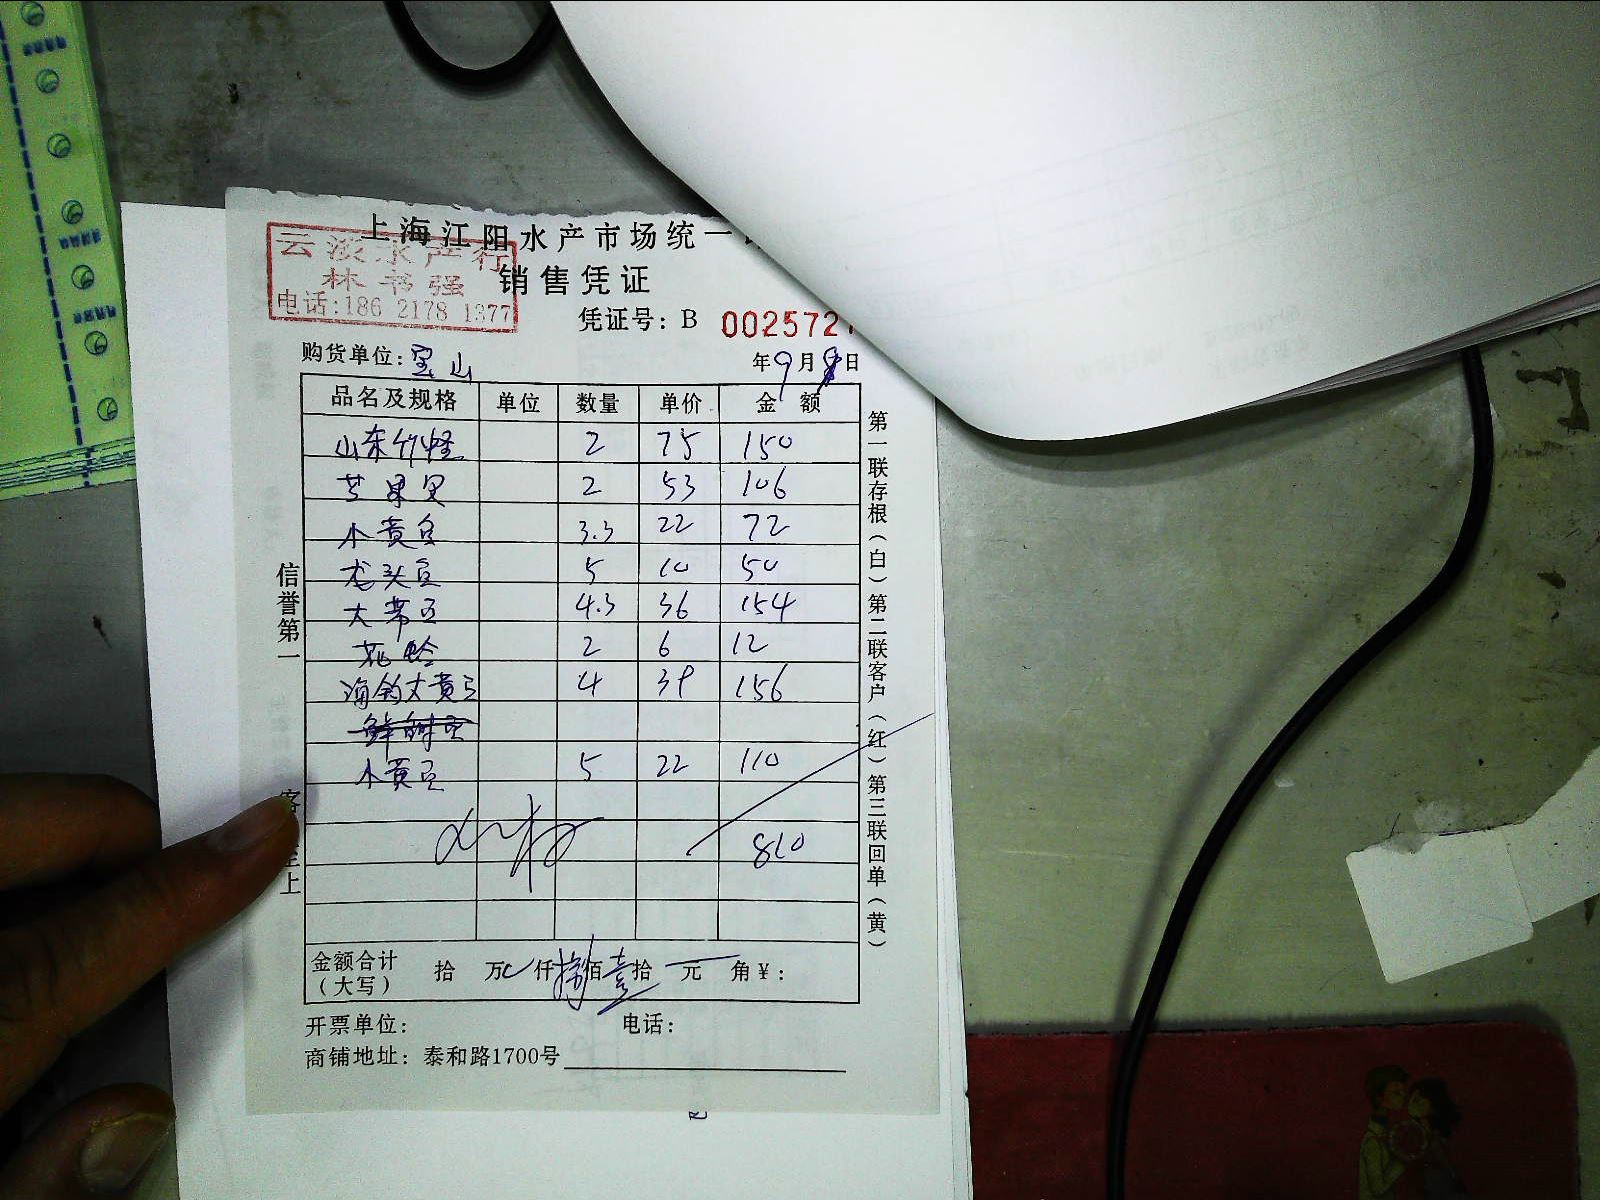 上海江阳水产市场统一
云淡水产行
林书强
电话:186 2178 1377
销售凭证
凭证号: B 002572
购货单位: 宝山
年9月8日
品名及规格 单位 数量 单价 金额
山东竹蛏 2 75 150
芒果贝 2 53 106
小黄鱼 3.3 22 72
龙头鱼 5 10 50
大带鱼 4.3 36 154
花蛤 2 6 12
海钓大黄鱼 4 39 156
小黄鱼 5 22 110
810
金额合计(大写) 拾 万 仟 捌佰 壹拾 元 角 ¥:
开票单位: 电话:
商铺地址: 泰和路1700号
信誉第一
客 至上
第一联存根(白)第二联客户(红)第三联回单(黄)